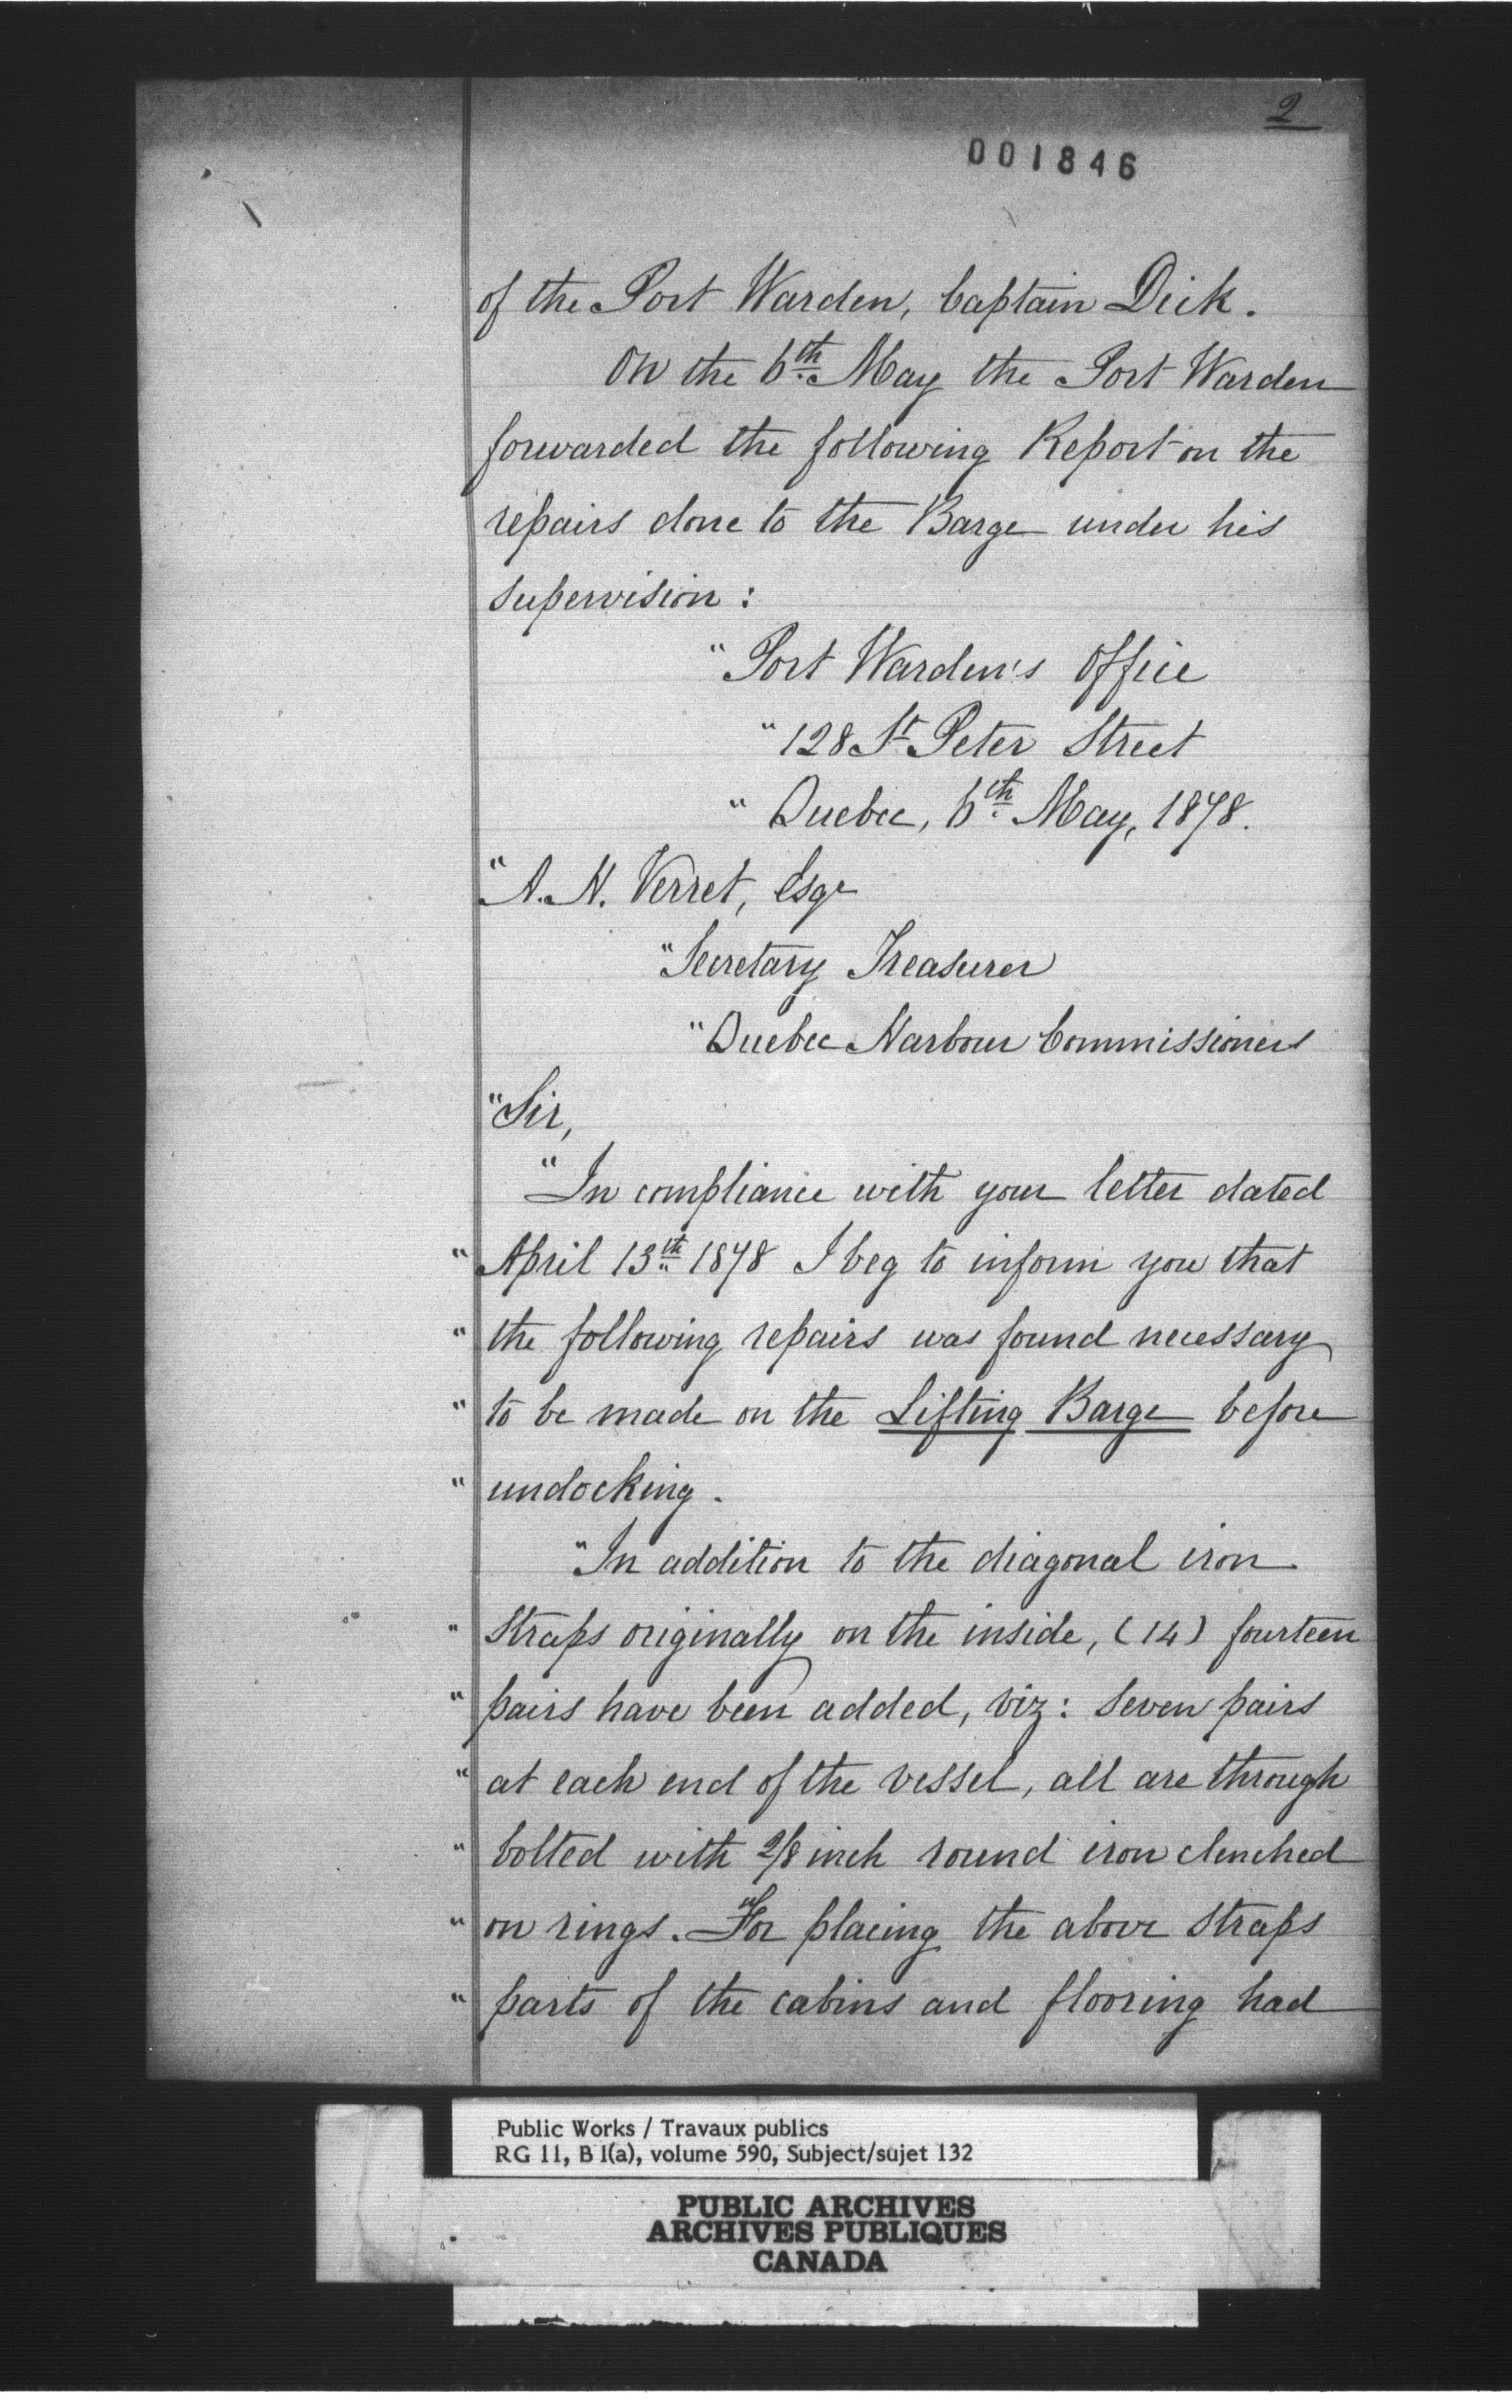 2
001846
of the Port Warden, Captain Dick.
On the 6th May the Port Warden
forwarded the following Report on the
repairs done to the Barge under his
supervision:
"Port Warden's Office
"128 St Peter Street
"Quebec, 6th May, 1878.
"A. H. Verret, Esqr
"Secretary Treasurer
"Quebec Harbour Commissioners
"Sir,
"In compliance with your letter dated
"April 13th 1878 I beg to inform you that
"the following repairs was found necessary
"to be made on the Lifting Barge before
"undocking.
"In addition to the diagonal iron
"straps originally on the inside, (14) fourteen
"pairs have been added, viz: seven pairs
"at each end of the vessel, all are through
"bolted with 9/8 inch round iron clenched
"on rings. "For placing the above straps
"parts of the cabins and flooring had
Public Works / Travaux publics
RG 11, B 1(a), volume 590, Subject/sujet 132
PUBLIC ARCHIVES
ARCHIVES PUBLIQUES
CANADA